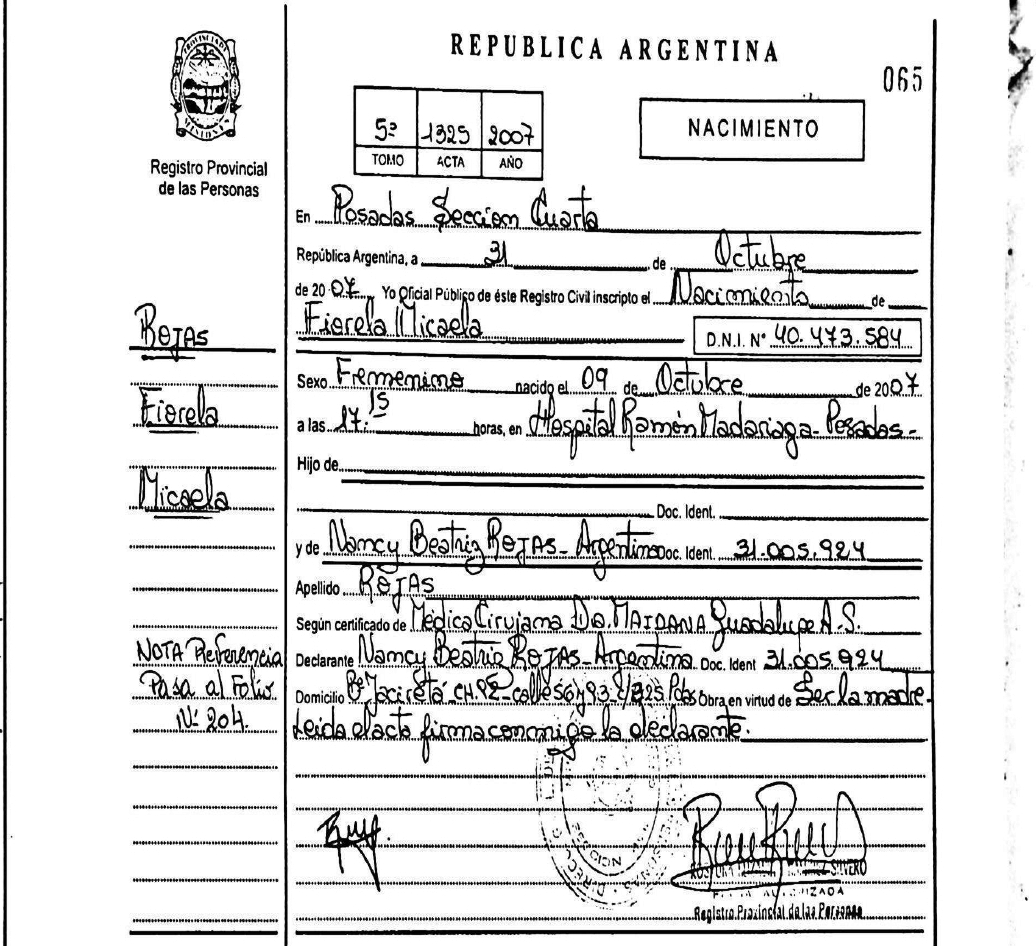 REPUBLICA ARGENTINA
065
PROVINCIA DE
MISIONES
Registro Provincial
de las Personas
5º 1325 2007
TOMO ACTA AÑO
NACIMIENTO
En Posadas Sección Cuarta
República Argentina, a 31 de Octubre
de 2007 Yo Oficial Público de éste Registro Civil inscripto el Nacimiento de
Fiorela Micaela
D.N.I. Nº 40.473.584
Sexo Fremenino nacido el 09 de Octubre de 2007
a las 17:15 horas, en Hospital Ramón Madariaga - Posadas -
Hijo de
Doc. Ident.
y de Nancy Beatriz ROJAS - Argentina Doc. Ident. 31.005.924
Apellido ROJAS
Según certificado de Médica Cirujama Da. MAIDANA Guadalupe A.S.
Declarante Nancy Beatriz ROJAS - Argentina Doc. Ident 31.005.924
Domicilio Bº Yaciretá - CH. calle 56 y 93 Pdas Obra en virtud de Ser la madre -
Leida el acta firma conmigo la declarante.
ROJAS
Fiorela
Micaela
NOTA Referencia
Pasa al Folio
Nº 204.
Registro Provincial de las Personas